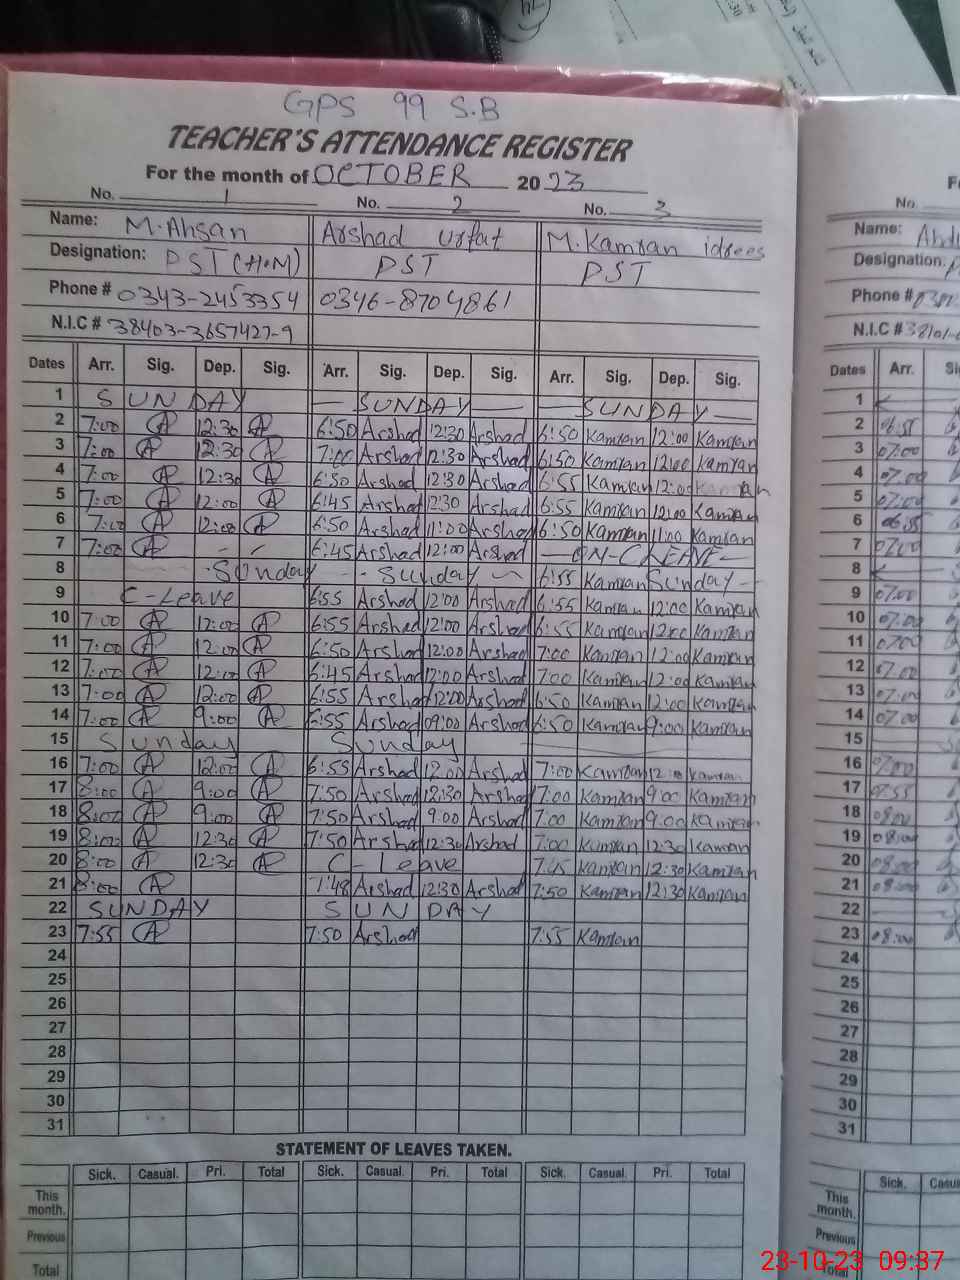 GPS 99 S.B
TEACHER'S ATTENDANCE REGISTER
For the month of OCTOBER 2023
No. 1 No. 2 No. 3
Name: M.Ahsan Arshad Urfat M.Kamran idrees
Designation: PST (H.M) PST PST
Phone # 0343-2453354 0346-8704861
N.I.C # 38403-3657427-9
Dates Arr. Sig. Dep. Sig. Arr. Sig. Dep. Sig. Arr. Sig. Dep. Sig.
1 SUNDAY — SUNDAY — — SUNDAY —
2 7:00 12:30 6:50 Arshad 12:30 Arshad 6:50 Kamran 12:00 Kamran
3 7:00 12:30 7:00 Arshad 12:30 Arshad 6:50 Kamran 12:00 Kamran
4 7:00 12:30 6:50 Arshad 12:30 Arshad 6:55 Kamran 12:00 Kamran
5 7:00 12:00 6:45 Arshad 12:30 Arshad 6:55 Kamran 12:00 Kamran
6 7:00 12:00 6:50 Arshad 11:00 Arshad 6:50 Kamran 11:00 Kamran
7 7:00 - - 6:45 Arshad 12:00 Arshad — ON-CLEAVE —
8 Sunday -- Sunday ~ 6:55 Kamran Sunday --
9 C-Leave 6:55 Arshad 12:00 Arshad 6:55 Kamran 12:00 Kamran
10 7:00 12:00 6:55 Arshad 12:00 Arshad 6:55 Kamran 12:00 Kamran
11 7:00 12:00 6:50 Arshad 12:00 Arshad 7:00 Kamran 12:00 Kamran
12 7:00 12:00 6:45 Arshad 12:00 Arshad 7:00 Kamran 12:00 Kamran
13 7:00 12:00 6:55 Arshad 12:00 Arshad 6:50 Kamran 12:00 Kamran
14 7:00 9:00 6:55 Arshad 09:00 Arshad 6:50 Kamran 9:00 Kamran
15 Sunday Sunday
16 7:00 12:00 6:55 Arshad 12:00 Arshad 7:00 Kamran 12:00 Kamran
17 8:00 9:00 7:50 Arshad 12:30 Arshad 7:00 Kamran 9:00 Kamran
18 8:00 9:00 7:50 Arshad 9:00 Arshad 7:00 Kamran 9:00 Kamran
19 8:00 12:30 7:50 Arshad 12:30 Arshad 7:00 Kamran 12:30 Kamran
20 8:00 12:30 C-Leave 7:45 Kamran 12:30 Kamran
21 8:00 7:48 Arshad 12:30 Arshad 7:50 Kamran 12:30 Kamran
22 SUNDAY SUNDAY
23 7:55 7:50 Arshad 7:55 Kamran
24
25
26
27
28
29
30
31
STATEMENT OF LEAVES TAKEN.
Sick. Casual. Pri. Total Sick. Casual. Pri. Total Sick. Casual. Pri. Total
This month.
Previous
Total
No.
Name:
Designation:
Phone #
N.I.C #
Dates Arr.
1
2 06:55
3 07:00
4 07:00
5 07:00
6 06:55
7 07:00
8
9 07:00
10 07:00
11 07:00
12 07:00
13 07:00
14 07:00
15
16 07:00
17 07:55
18 08:00
19 08:00
20 08:00
21 08:00
22
23 08:00
24
25
26
27
28
29
30
31
Sick.
This month.
Previous
Total
23-10-23 09:37